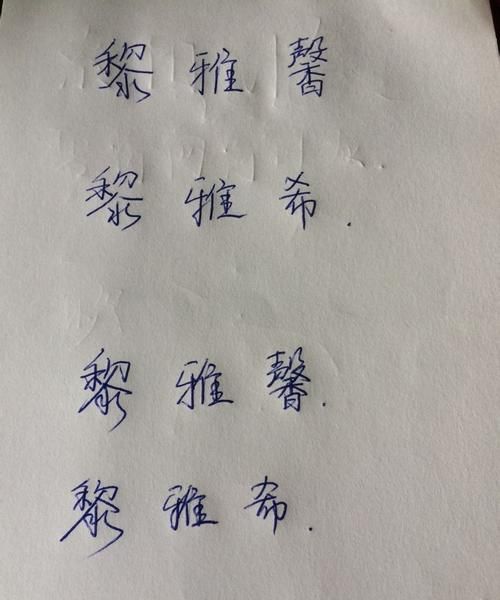 黎雅馨
黎雅希.
黎雅馨.
黎雅希.